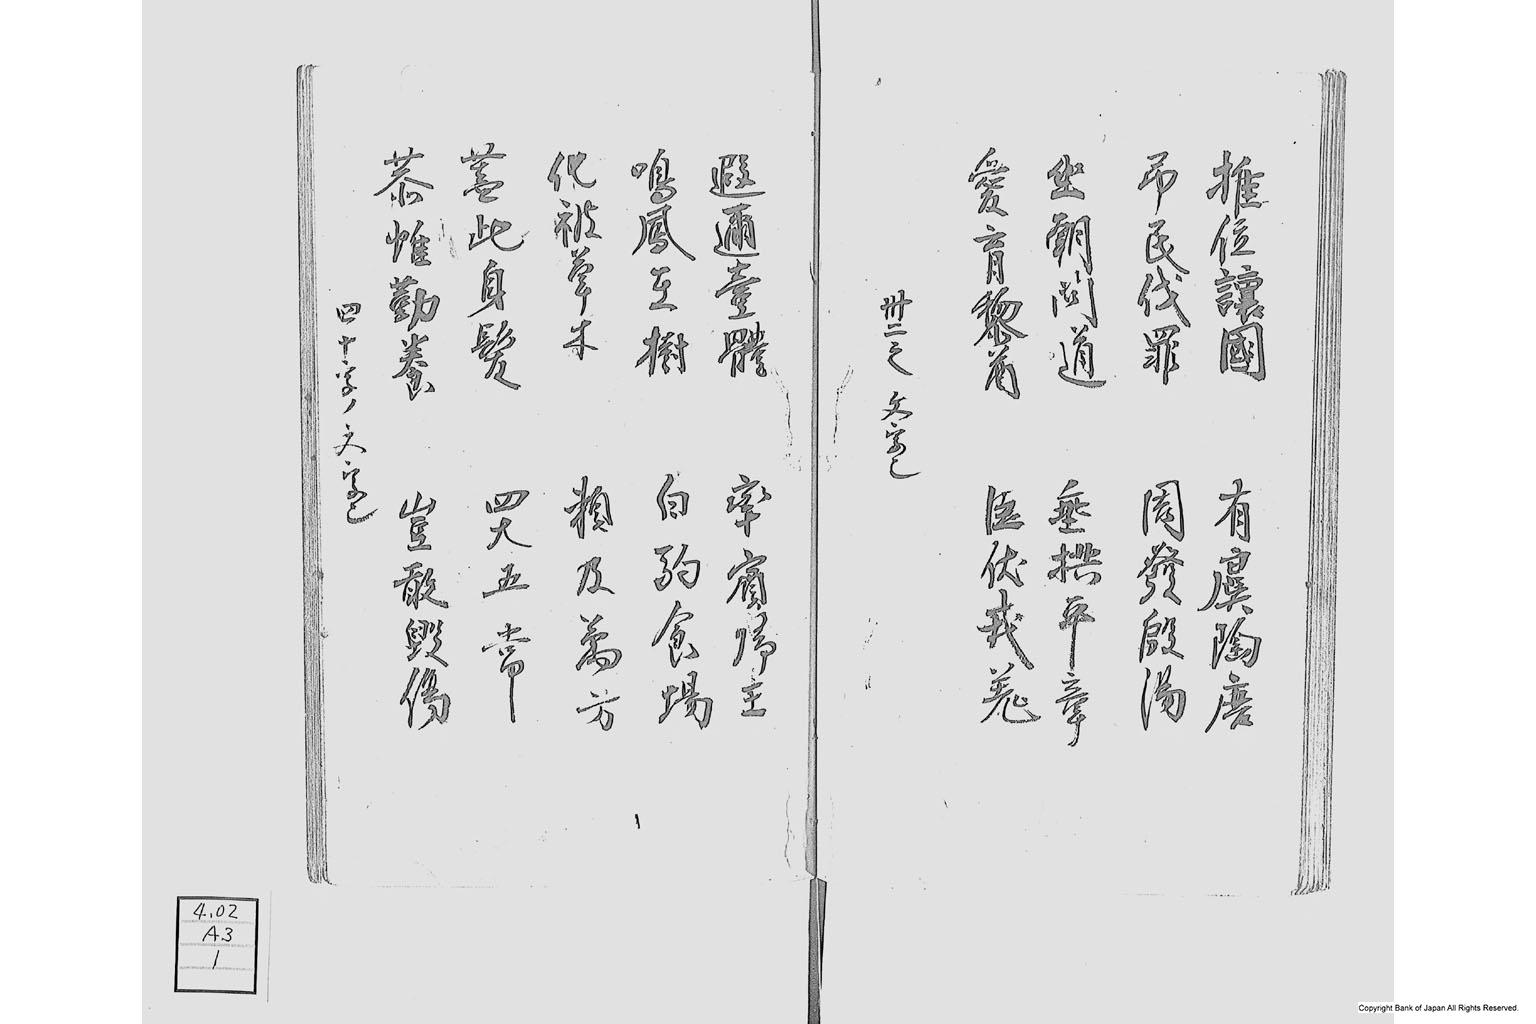 推位讓國 有虞陶唐
吊民伐罪 周發殷湯
坐朝問道 垂拱平章
愛育黎首 臣伏戎羌
卅二之 文字已
遐邇壹體 率賓歸王
鳴鳳在樹 白駒食場
化被草木 賴及萬方
蓋此身髮 四大五常
恭惟鞠養 豈敢毀傷
四十字ノ文字已
4.02
A3
1
Copyright Bank of Japan All Rights Reserved.